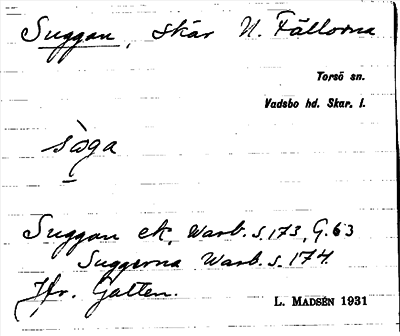 Suggan, skär N. Fällorna
Torsö sn.
Vadsbo hd. Skar. l.
sòga
Suggan ek, Warb. s. 173, G. 63
Suggorna Warb. s. 174.
Jfr. Galten.
L. MADSÉN 1931